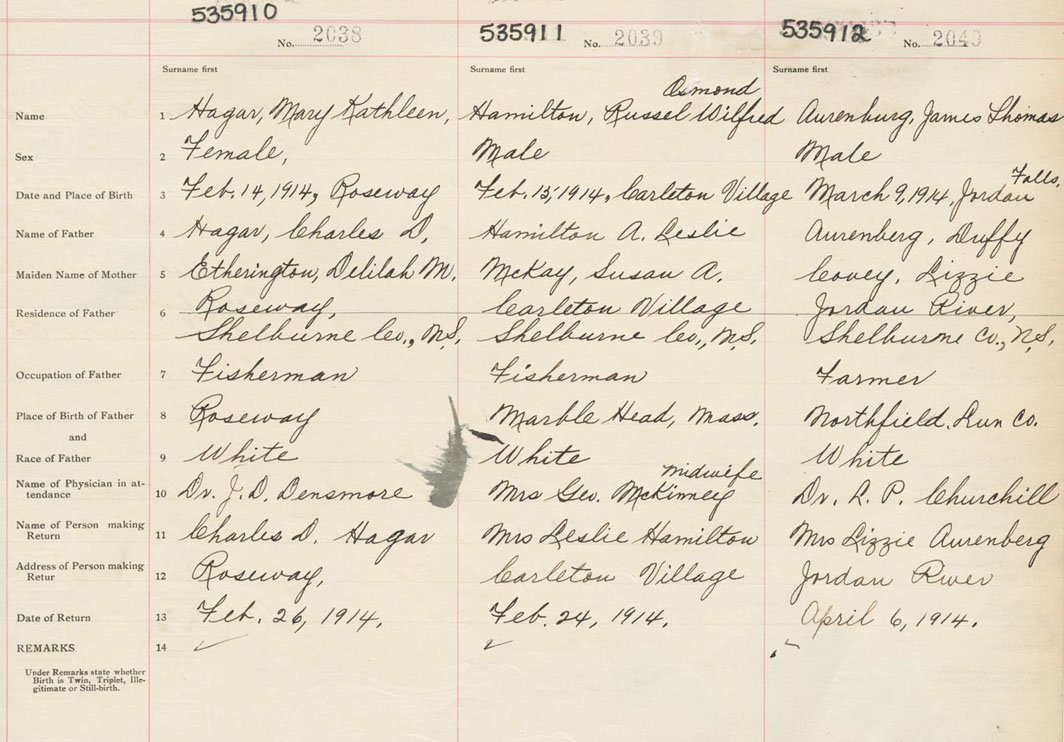 535910 535911 535912
No. 2038 No. 2039 No. 2040
Surname first Surname first Surname first
Osmond
Name 1 Hagar, Mary Kathleen, Hamilton, Russel Wilfred Aurenburg, James Thomas
Sex 2 Female, Male Male
Falls,
Date and Place of Birth 3 Feb. 14, 1914, Roseway Feb. 15, 1914, Carleton Village March 9, 1914, Jordan
Name of Father 4 Hagar, Charles D. Hamilton A. Leslie Aurenberg, Duffy
Maiden Name of Mother 5 Etherington, Delilah M. McKay, Susan A. Covey, Lizzie
Residence of Father 6 Roseway, Carleton Village Jordan River,
Shelburne Co., N.S. Shelburne Co., N.S. Shelburne Co., N.S.
Occupation of Father 7 Fisherman Fisherman Farmer
Place of Birth of Father 8 Roseway Marble Head, Mass. Northfield, Lun Co.
and
Race of Father 9 White White White
midwife
Name of Physician in at-
tendance 10 Dr. J. D. Densmore Mrs Geo. McKinney Dr. L. P. Churchill
Name of Person making
Return 11 Charles D. Hagar Mrs Leslie Hamilton Mrs Lizzie Aurenberg
Address of Person making
Retur 12 Roseway, Carleton Village Jordan River
Date of Return 13 Feb. 26, 1914. Feb. 24, 1914. April 6, 1914.
REMARKS 14
Under Remarks state whether
Birth is Twin, Triplet, Ille-
gitimate or Still-birth.